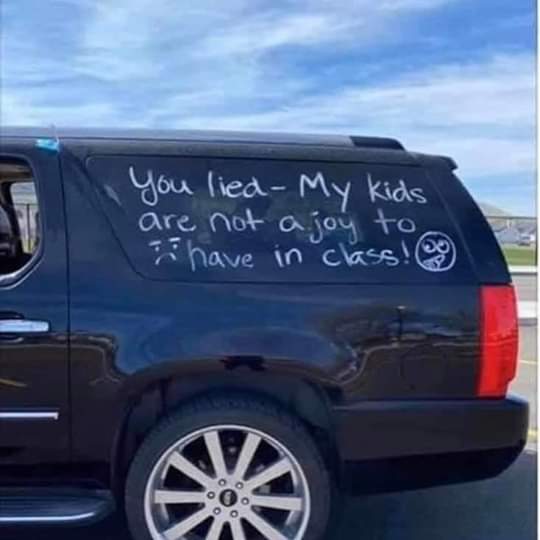 You lied - My kids
are not a joy to
have in class!